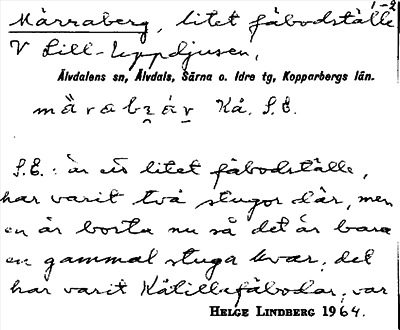 1-2
Märraberg, litet fäbodställe
V Lill-Uppdjusen,
Älvdalens sn, Älvdals, Särna o. Idre tg, Kopparbergs län.
Kå. S.E.
S.E.: är ett litet fäbodställe,
har varit två stugor där, men
en är borta nu så det är bara
en gammal stuga kvar; det
har varit Kåtillafäbodar; var
HELGE LINDBERG 1964.